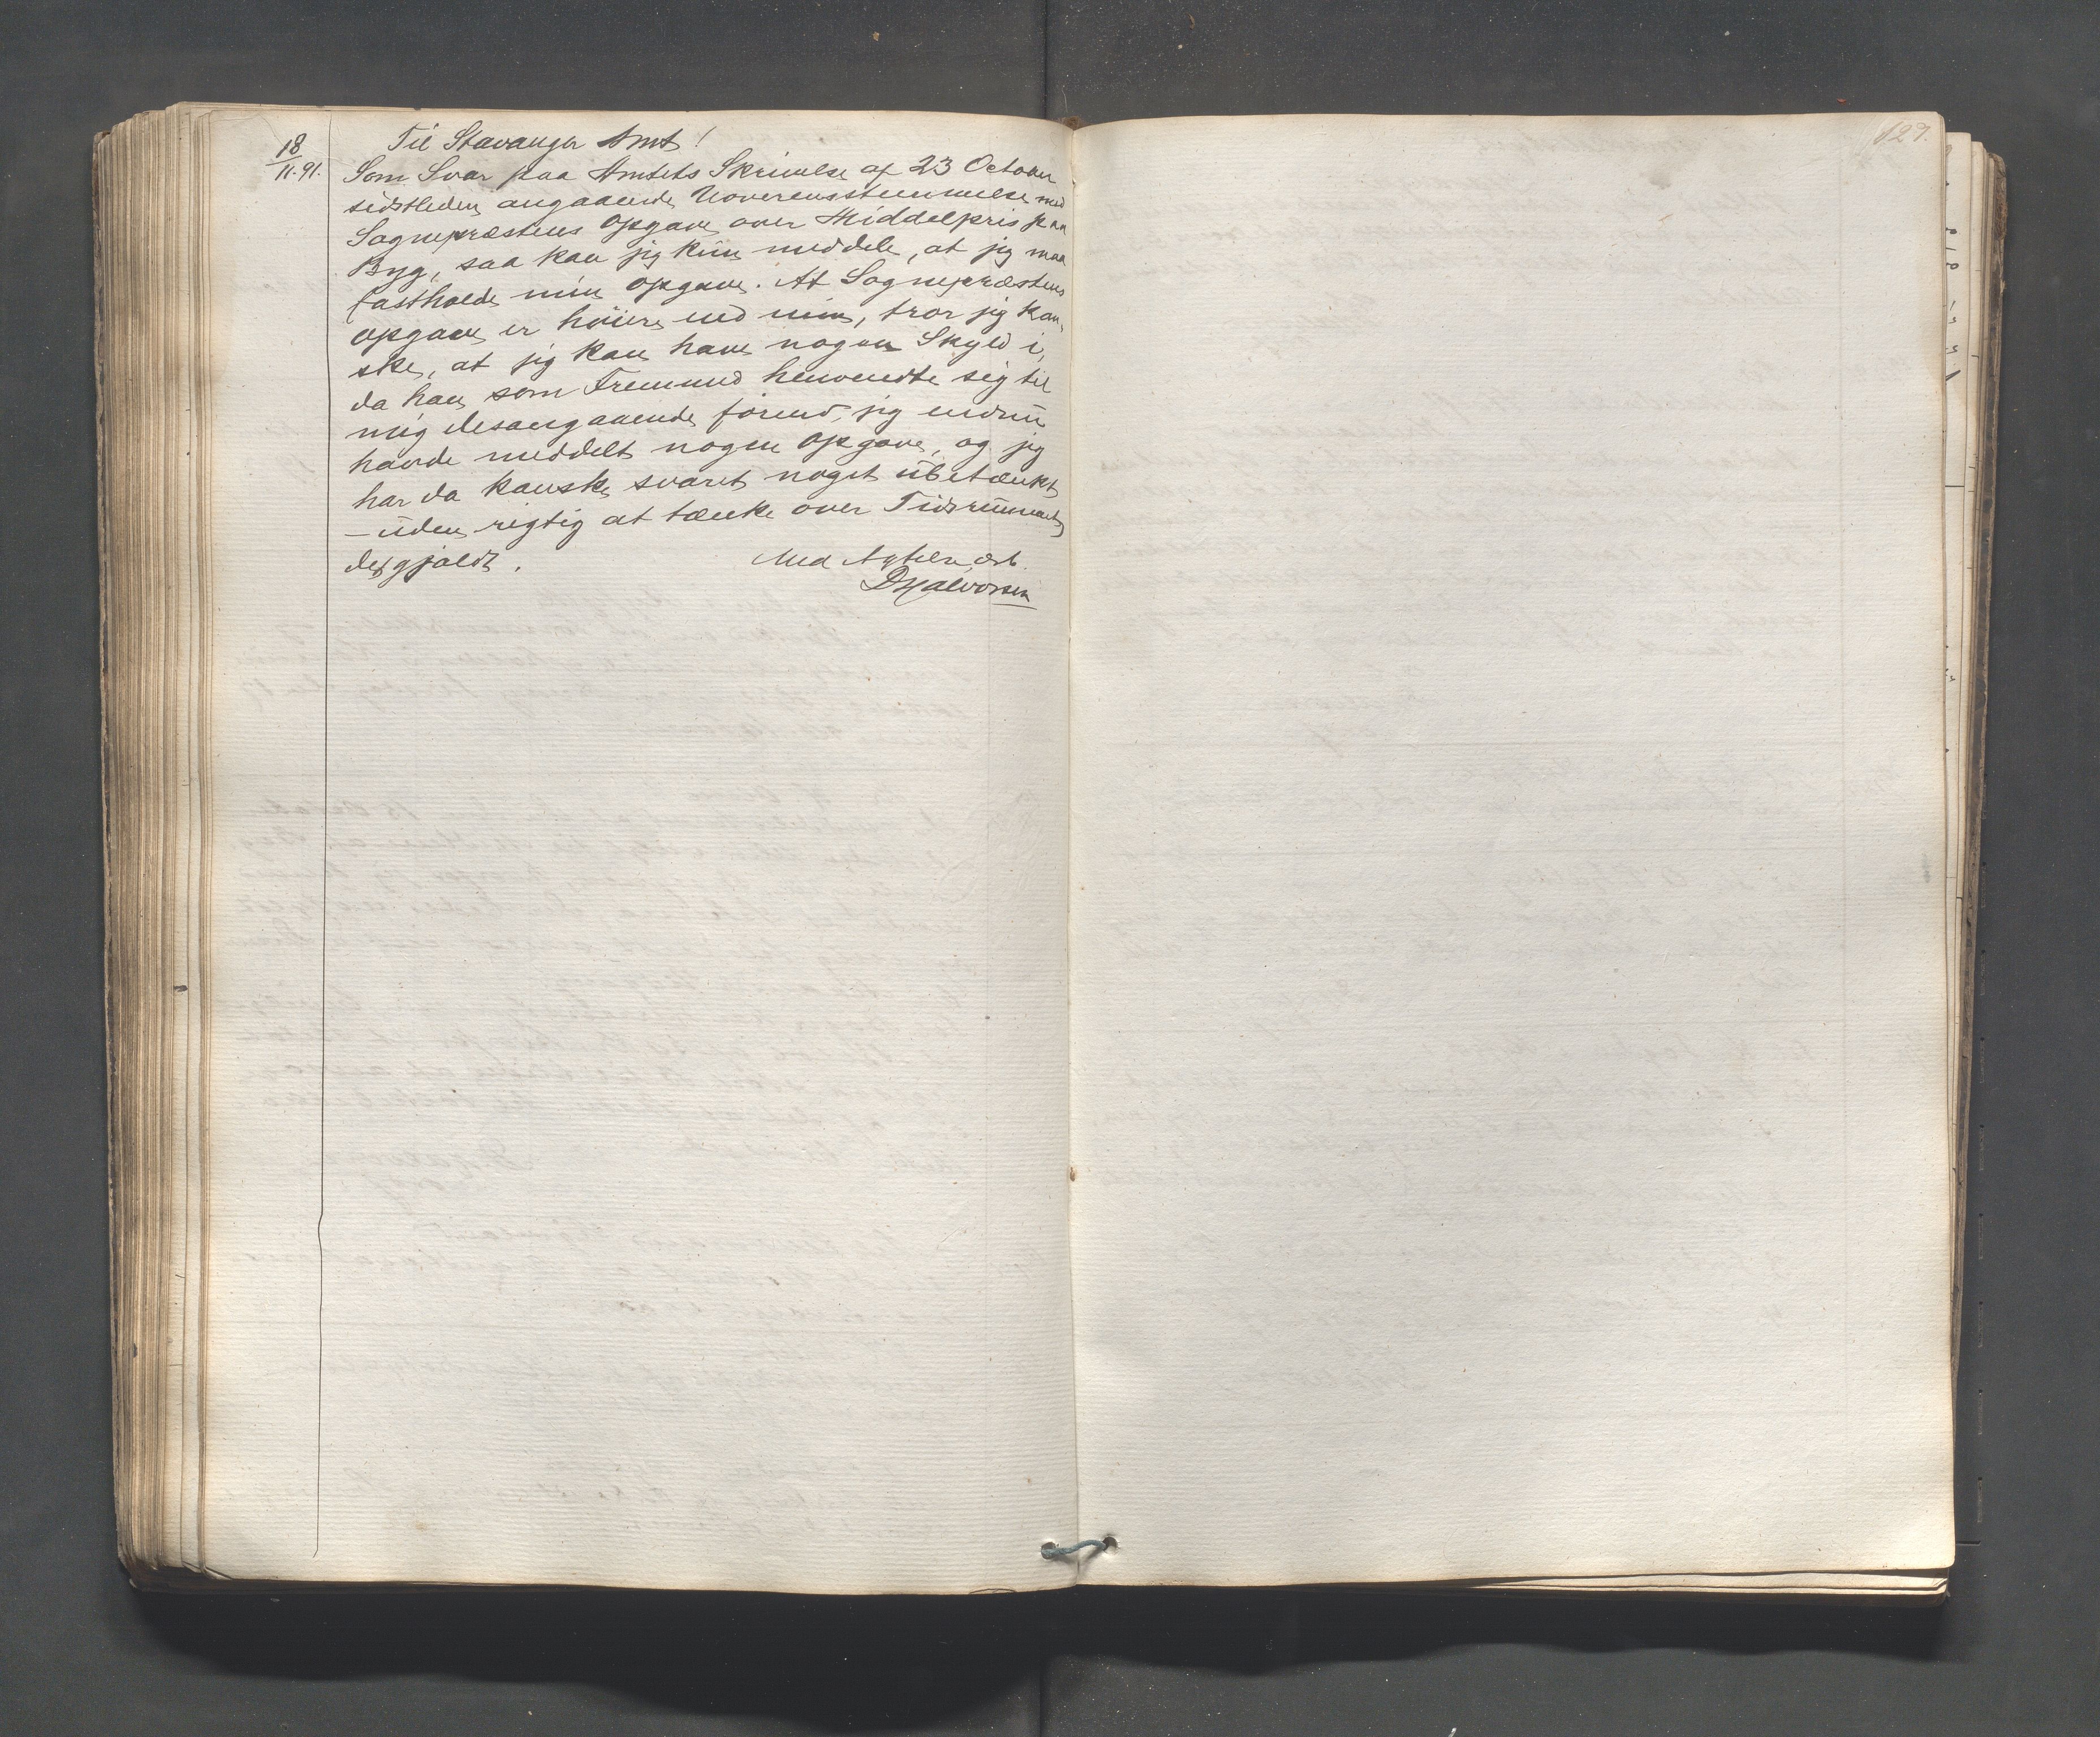 18/11.91.
Til Stavanger Amt!
Som Svar paa Amtets Skrivelse af 23 October
sidstleden angaaende Uoverensstemmelse med
Sognepræstens Opgave over Middelpris paa
Byg, saa kan jeg kun meddele, at jeg maa
fastholde min Opgave. At Sognepræstens
Opgave er høiere end min, tror jeg kan-
ske, at jeg kan have nogen Skyld i,
da han som Fremmed henvendte sig til
mig desangaaende førend jeg endnu
havde meddelt nogen Opgave, og jeg
har da kanske svaret noget übetænkt
- uden rigtig at tænke over Tidsrummet
det gjaldt.
Med Agtelse
DHalvorsen
127.